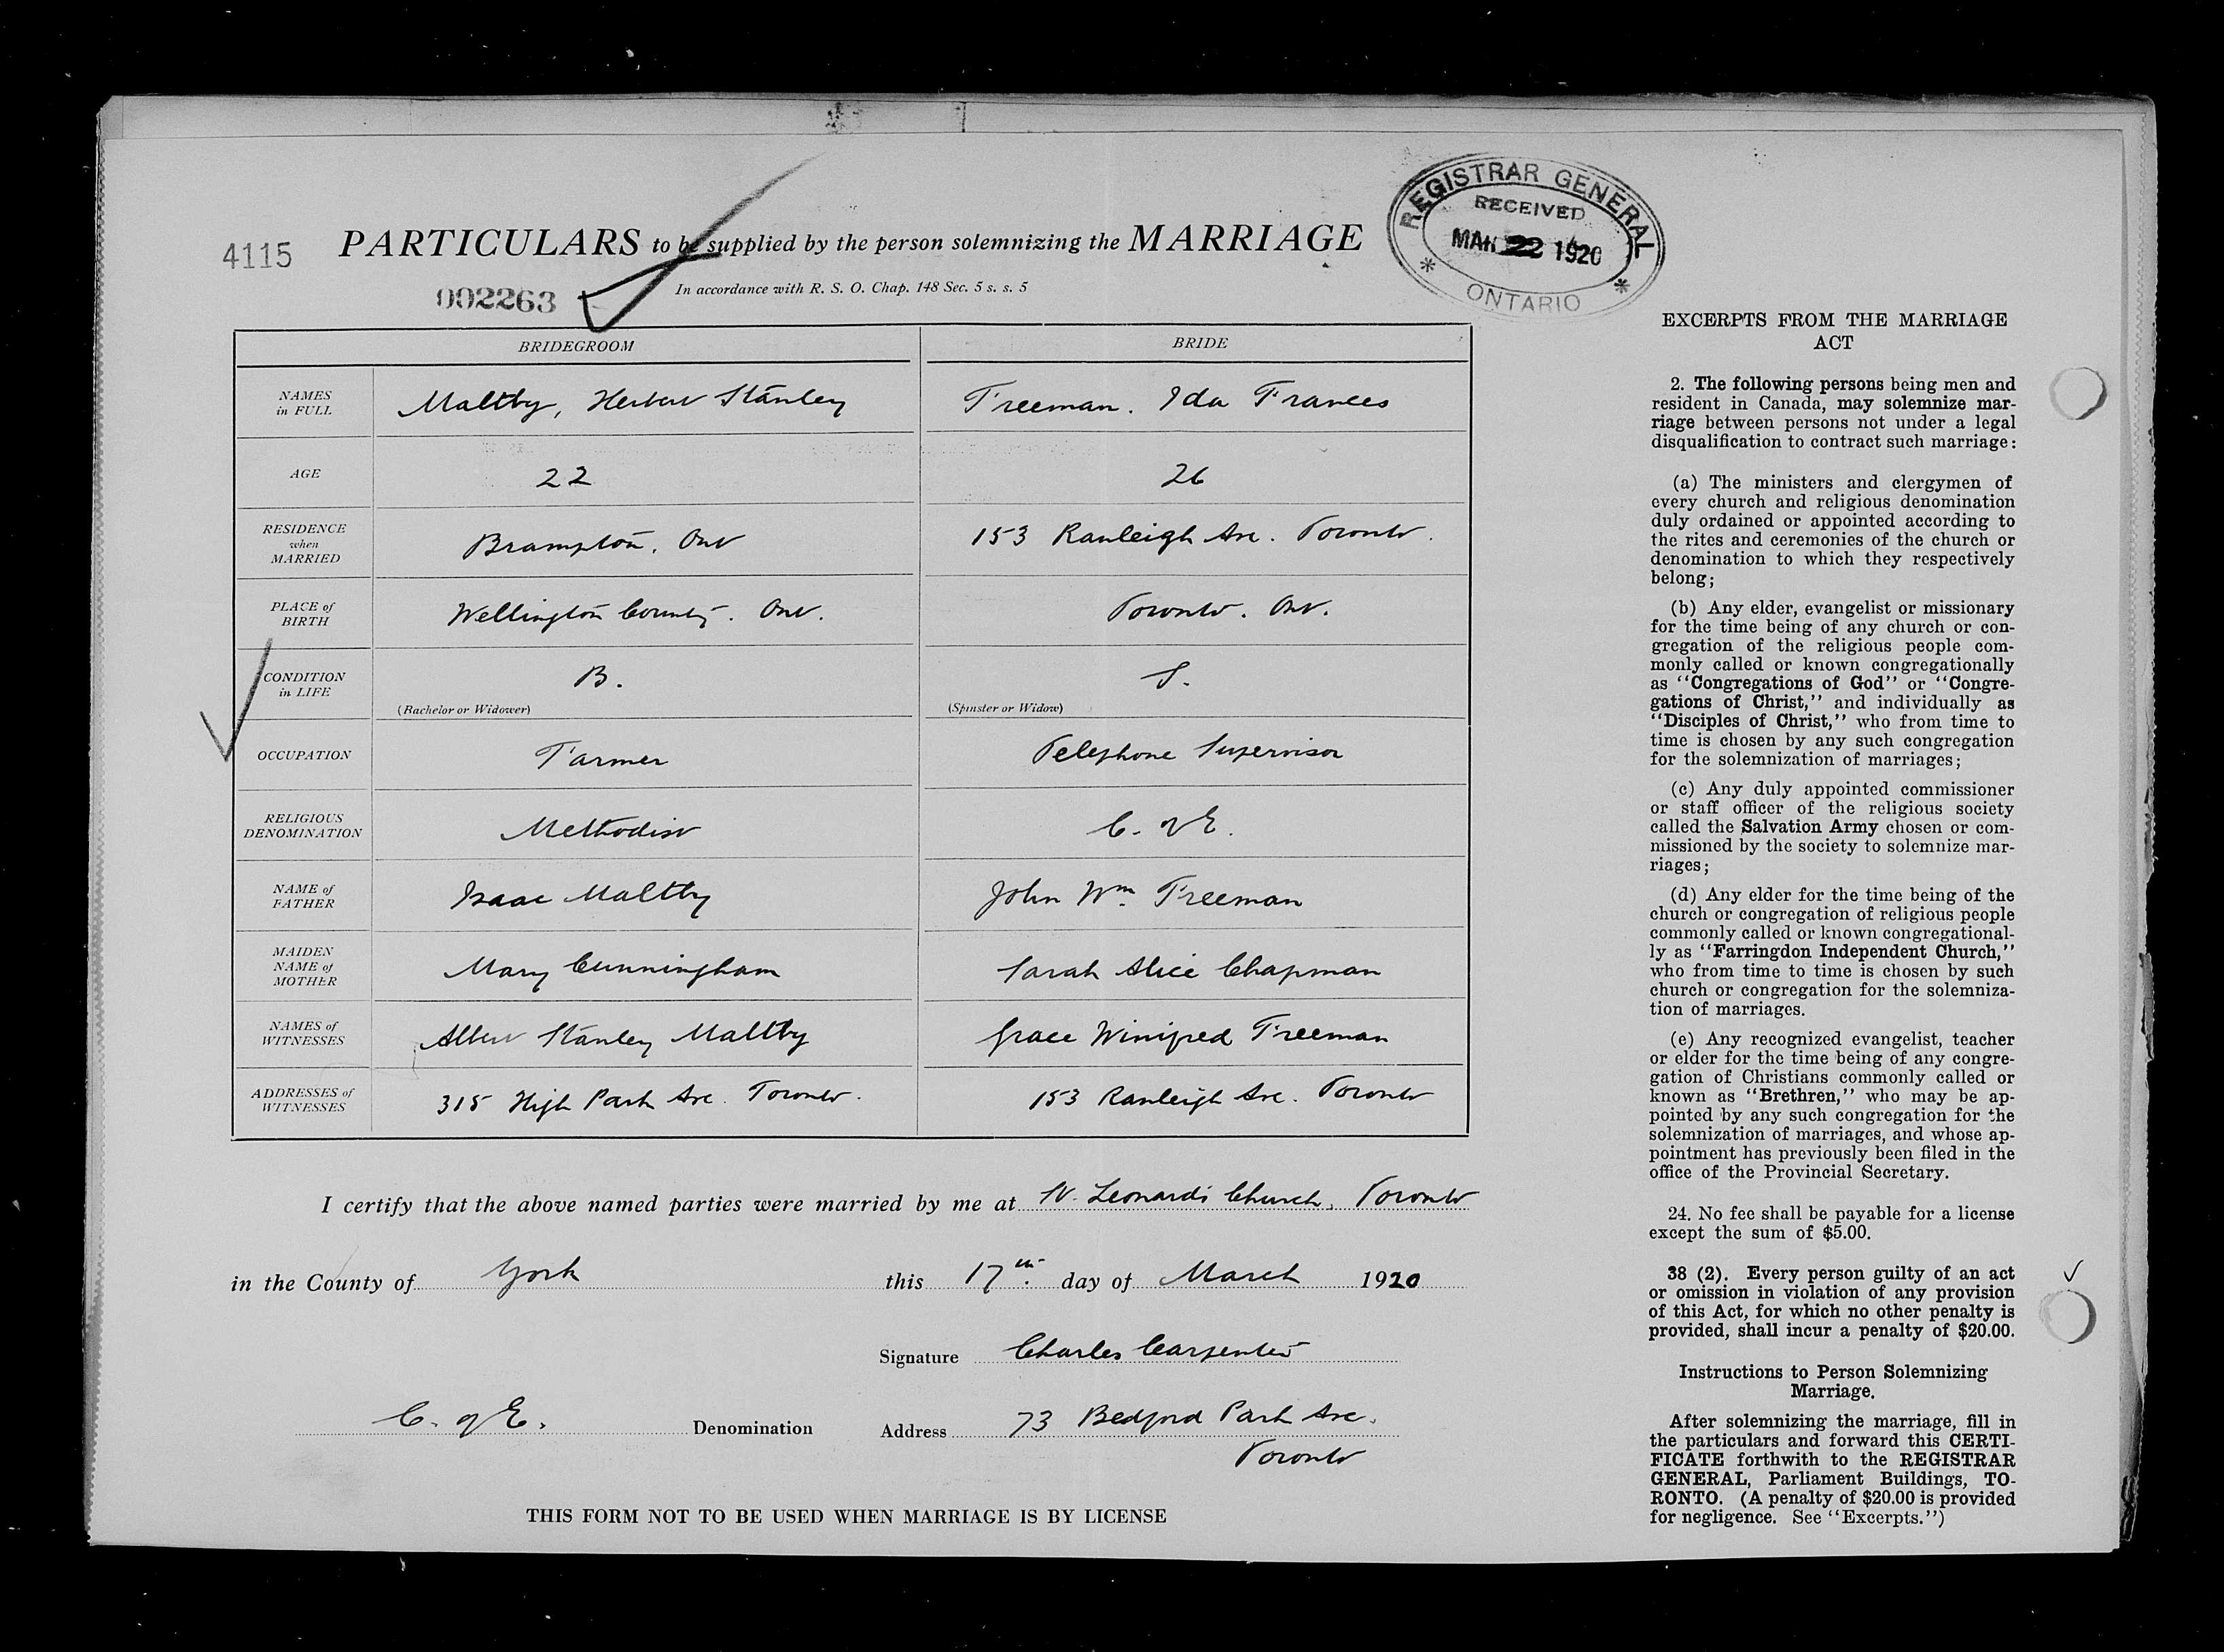 4115
PARTICULARS to be supplied by the person solemnizing the MARRIAGE
REGISTRAR GENERAL
RECEIVED
MAR 22 1920
ONTARIO
002263
In accordance with R. S. O. Chap. 148 Sec. 5 s. s. 5
BRIDEGROOM BRIDE
NAMES in FULL Maltby, Herbert Stanley Freeman. Ida Frances
AGE 22 26
RESIDENCE when MARRIED Brampton. Ont 153 Ranleigh Ave. Toronto.
PLACE of BIRTH Wellington County. Ont. Toronto. Ont.
CONDITION in LIFE B. S.
(Bachelor or Widower) (Spinster or Widow)
OCCUPATION Farmer Telephone Supervisor
RELIGIOUS DENOMINATION Methodist C. of E.
NAME of FATHER Isaac Maltby John Wm. Freeman
MAIDEN NAME of MOTHER Mary Cunningham Sarah Alice Chapman
NAMES of WITNESSES Albert Stanley Maltby Grace Winifred Freeman
ADDRESSES of WITNESSES 315 High Park Ave. Toronto. 153 Ranleigh Ave. Toronto
I certify that the above named parties were married by me at St. Leonards Church, Toronto
in the County of York this 17th. day of March 1920
Signature Charles Carpenter
C. of E. Denomination Address 73 Bedford Park Ave.
Toronto
THIS FORM NOT TO BE USED WHEN MARRIAGE IS BY LICENSE
EXCERPTS FROM THE MARRIAGE
ACT
2. The following persons being men and
resident in Canada, may solemnize mar-
riage between persons not under a legal
disqualification to contract such marriage:
(a) The ministers and clergymen of
every church and religious denomination
duly ordained or appointed according to
the rites and ceremonies of the church or
denomination to which they respectively
belong;
(b) Any elder, evangelist or missionary
for the time being of any church or con-
gregation of the religious people com-
monly called or known congregationally
as "Congregations of God" or "Congre-
gations of Christ," and individually as
"Disciples of Christ," who from time to
time is chosen by any such congregation
for the solemnization of marriages;
(c) Any duly appointed commissioner
or staff officer of the religious society
called the Salvation Army chosen or com-
missioned by the society to solemnize mar-
riages;
(d) Any elder for the time being of the
church or congregation of religious people
commonly called or known congregational-
ly as "Farringdon Independent Church,"
who from time to time is chosen by such
church or congregation for the solemniza-
tion of marriages.
(e) Any recognized evangelist, teacher
or elder for the time being of any congre-
gation of Christians commonly called or
known as "Brethren," who may be ap-
pointed by any such congregation for the
solemnization of marriages, and whose ap-
pointment has previously been filed in the
office of the Provincial Secretary.
24. No fee shall be payable for a license
except the sum of $5.00.
38 (2). Every person guilty of an act
or omission in violation of any provision
of this Act, for which no other penalty is
provided, shall incur a penalty of $20.00.
Instructions to Person Solemnizing
Marriage.
After solemnizing the marriage, fill in
the particulars and forward this CERTI-
FICATE forthwith to the REGISTRAR
GENERAL, Parliament Buildings, TO-
RONTO. (A penalty of $20.00 is provided
for negligence. See "Excerpts.")